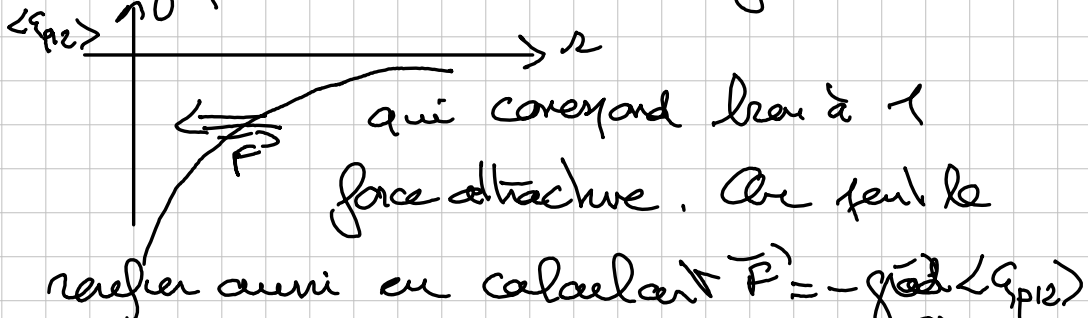 <Ep12> 0
r
F⃗ qui corespond bien à 1
force attractive. On peut le
verifier aussi en calculant F⃗ = - grad <Ep12>